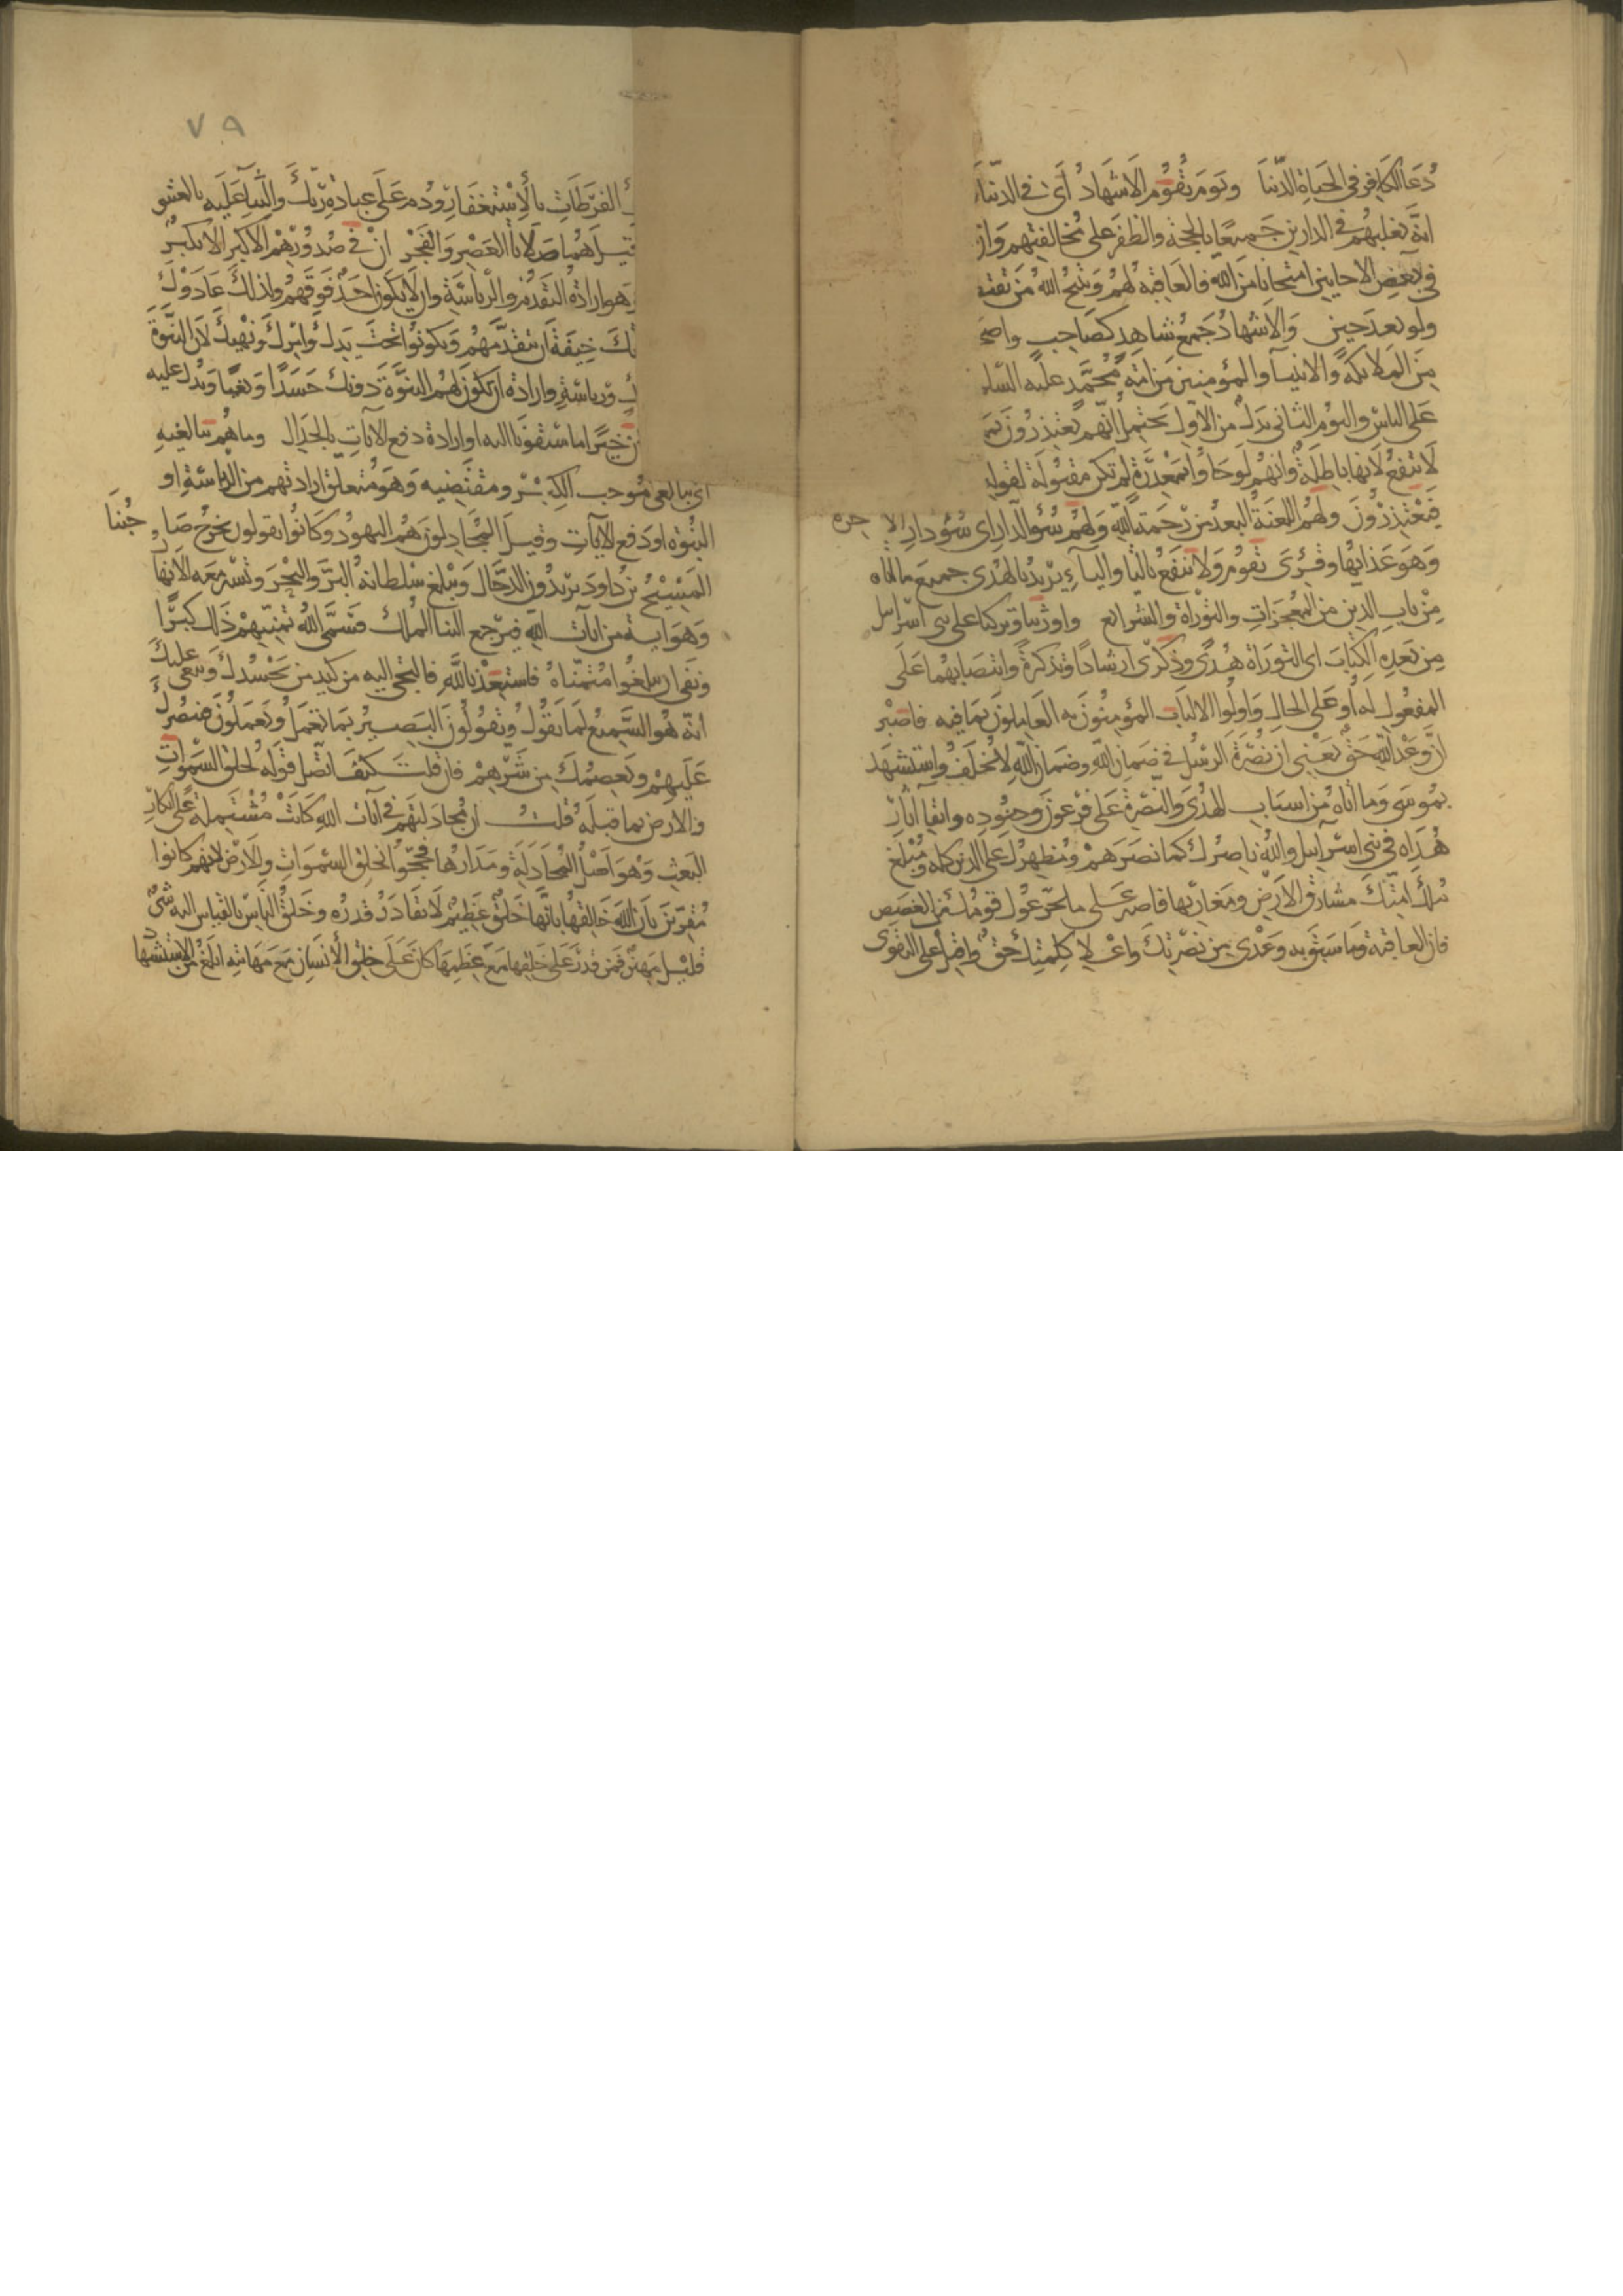 دُعَا الكافِر في الحَياةِ الدّنيَا وَيَومَ يقُوُم الاَشهَادُ اَى في الدنيَا
انهّ يَغلبهُم في الدارين جَميعًا بالحجّة والظفَر على مُخالفيهم وَان
في بَعضِ الاحايين امتحَانًا مَن اللهِ فالعَاقبَة لهُم وَيتيحُ الله مَن يقتصّ
ولو بَعدَ حِين وَالاشهادُ جَمعُ شاهدِ كصَاحِب واصحَ
مِنَ المَلايكة وَالانبيَآ وَالمؤمنين مَن امّة مُحَمَّدٍ عليه السّلَ
عَلَى الناسِ واليَوُم الثانى بَدَلُ من الاوّل يَحتملُ انّهم يَعتذرُونَ بمَ
لاَ تنفعُ لانها باطلةٌ وانهُم لَو جَاؤا بمَعْذِرَة لم تكن مقبُولَةً لقوله
فيَعْتذرُونَ وَلهُم اللعنَةُ البعدُ من رَّحمَة اللهِ وَلهُم سُؤ الدار اى سُؤ دار الاخِرَة
وَهوَ عَذابُهَا وقُرِىَ تقُومُ وَلا تنفعُ بالتا واليآءِ يُريدُ بالهُدَى جميعَ ما اتاه
مِنْ باب الدين من المعُجزَاتِ والتورَاةِ والشرايع وَاورَثنا وتركنَا على بنى اسرايل
مِن بَعدِه الكتابَ اى التوراة هُدًى وذكرَى ارشادًا وَتذكرةً وانتصَابهُما عَلَى
المفعُول لهُ او عَلى الحالِ وَاوُلوا الالبَاب المؤمِنُونَ به العَامِلونَ بمَا فيه فاصْبر
انَّ وَعْدَ الله حَقٌ يَعنى ان نُصْرَة الرسُل في ضَمانِ الله وضمان الله لا يُخلَف واستَشهَد
بمُوسَى وَمَا اتاه من اسبَاب الهُدَى وَالنصْرَة على فرْعَون وَجنُودِه وابقآ اثار
هُدَاه في بنى اسْرآئيل والله نَاصِرُك كما نصَرَهم وَمُظهرُك على الدين كله وَمُبلغ
مُلك امّتكَ مشارقَ الارضِ ومَغاربَها فاصبر عَلى ما يجرّعُك قومُك من الغصَص
فان العاقبَة وَما سَبَقَ به وَعْدى من نصْرتِكَ واعْلاء كلِمتِك حَقٌ واقبلْ على التقوى
٧٩
الفَرَطاتِ بالأِسْتغفارِ ودُم عَلَى عبادَةِ رَبّكَ والثّنآءِ عَلَيه بالعَشىِ
قيلَ هُما صَلاتا العَصْر وَالفَجْر انْ في صُدوُرِهْم الاّ كِبر الاّ تكبرٌ
وَهو ارادةُ التقدّم والرّياسَة وان لا يكون احَدٌ فَوقهُم ولذلكَ عَادَوْكَ
خِيفَةَ ان تتقدَّمهُم وَيكونوا تحتَ يَدِكَ وامْركَ وَنهيكَ لاَن النبوَّة
ورِياسَةٍ وارادة ان تكونَ لَهُم النبوّة دونكَ حَسَدًا وَبَغيًا وَيدُل عليه
خيرًا ما سَبقونَا اليه او ارادة دفعِ الآياتِ بالجدَال وما هُم ببالغيهِ
اى ببَالغى موُجب الكِبر ومقتضيه وَهوَ متعلق ارادتهم من الرياسَةِ او
النبوّة او دَفع الآياتِ وقيلَ المجَادِلون هَمُ اليهود وَكانوُا يقولون يخرُج صَاحِبُنَا
المَسْيحُ بن دَاود يريدُون الدجّال وَيبلغ سُلطانه البَرّ وَالبَحْر وتسيرُ معَه الانهَا
وَهوَ آية من ايات الله فيَرْجع الينا المُلك فَسَمَّى الله تَمنِّيهم ذَلك كِبرًا
وَنفى ان يبلغُوا مُتمنّاهُ فاستعِذ بالله فالتجئ اليهِ من كيد من يحْسُدكَ وَيبغى عليكَ
انّه هُو السَّميعُ لما تقُول ويقُولُونَ البَصيرُ بمَا تعمَلُ وَيَعمَلُونَ فهو ناصرُك
عَلَيهمْ وَيَعصِمُكَ مِن شرّهِمْ فان قلتَ كيفَ اتصَل قولهُ لخلقُ السّمواتِ
والارض بما قبلَهُ قلتُ ان مُجادلتهَم في آيات الله كَانَتْ مُشتملةً على انكارِ
البَعثِ وَهوَ اَصْلُ المجَادَلة ومَدَارُهَا فحُجّوا بخلِق السّمواتِ والاَرْض لانهم كانوا
مُقرّينَ بان الله خالقهُا بانهَا خَلقٌ عَظِيمٌ لاَ يقادَر قدرُه وخَلقُ الناس بالقياس اليه شىٌ
قليْل مَهينٌ فمَن قدرَ عَلَى خلقِهَا مَعَ عظِمِهَا كان عَلَى خلق الاِنْسَانِ مَعَ مَهانته اقدر ابلغ من الاستشها د